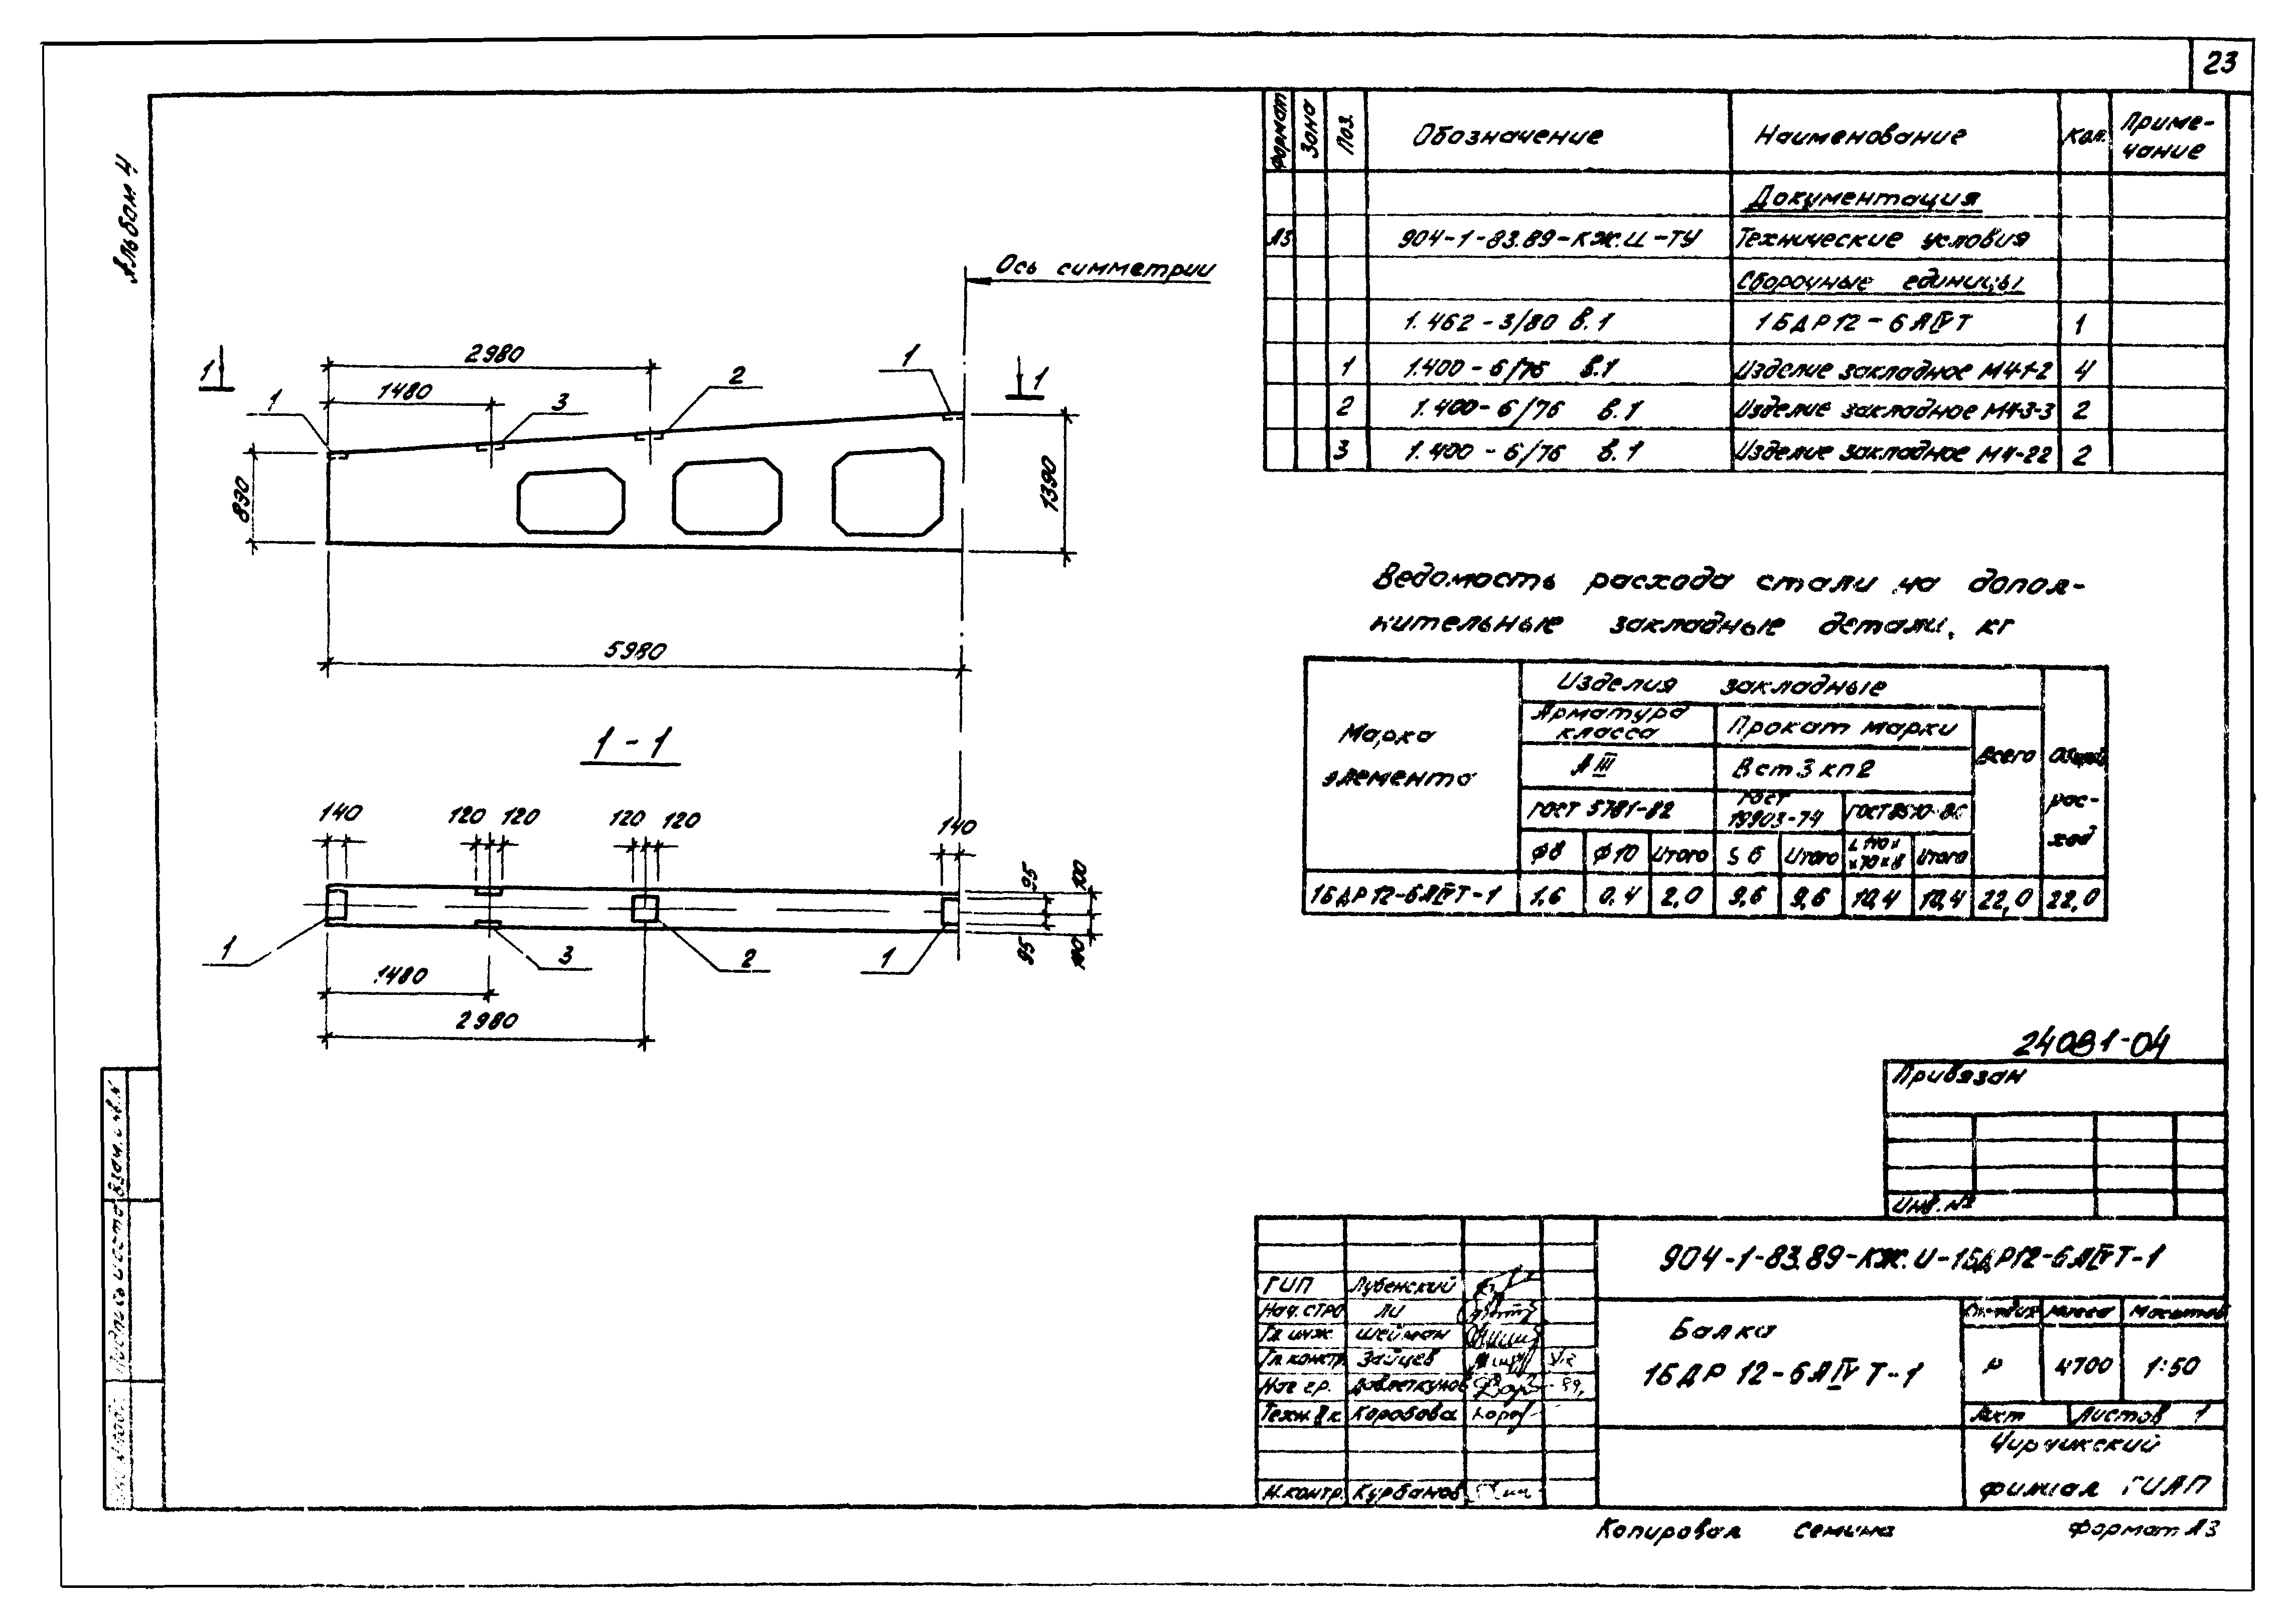 23
Альбом 4
Формат Зона Поз. Обозначение Наименование Кол. Приме-
чание
Документация
А3 904-1-83.89-КЖ.И-ТУ Технические условия
Сборочные единицы
1.462-3/80 в.1 1БДР12-6АIVТ 1
1 1.400-6/76 в.1 Изделие закладное М4-1-2 4
2 1.400-6/76 в.1 Изделие закладное М4-3-3 2
3 1.400-6/76 в.1 Изделие закладное М4-22 2
Ось симметрии
2980
1480
1 1
1 3 2 1
890
1390
5980
1-1
140 120 120 120 120 140
95 100
95 100
1 3 2 1
1480
2980
Ведомость расхода стали на допол-
нительные закладные детали, кг
Марка
элемента
Изделия закладные
Арматура
класса
Прокат марки
Всего
Общий
рас-
ход
АIII
Вст3кп2
ГОСТ 5781-82
ГОСТ
19903-74
ГОСТ 8510-86
φ8 φ10 Итого S6 Итого Итого
1БДР12-6АIVТ-1 1,6 0,4 2,0 9,6 9,6 10,4 10,4 22,0 22,0
24081-04
Привязан
Инв.№
904-1-83.89-КЖ.И-1БДР12-6АIVТ-1
ГИП Лубенский
Нач.стро Ли
Гл.инж. Шейман
Гл.констр. Зайцев
Нач. гр.
Техн. IIк. Коробова
Н.контр. Курбанов
Балка
1БДР 12-6АIVТ-1
Стадия Масса Масштаб
Р 4700 1:50
Лист Листов 1
Чирчикский
филиал ГИАП
Взам.инв.№
Подпись и дата
Копировал Семина Формат А3